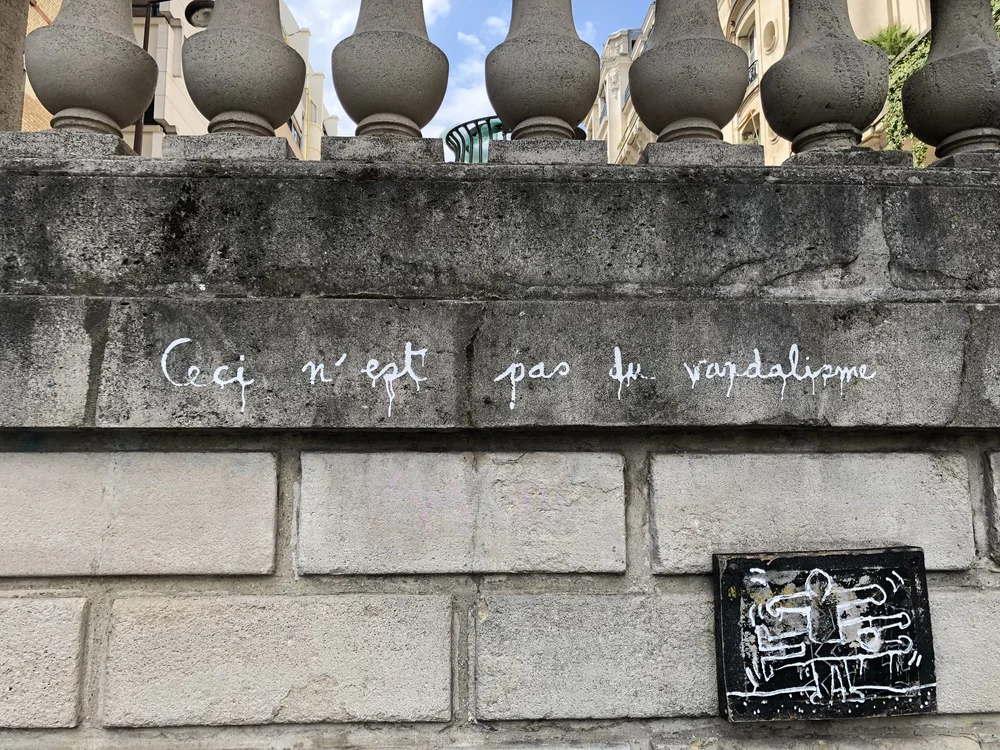 Ceci n'est pas du vandalisme